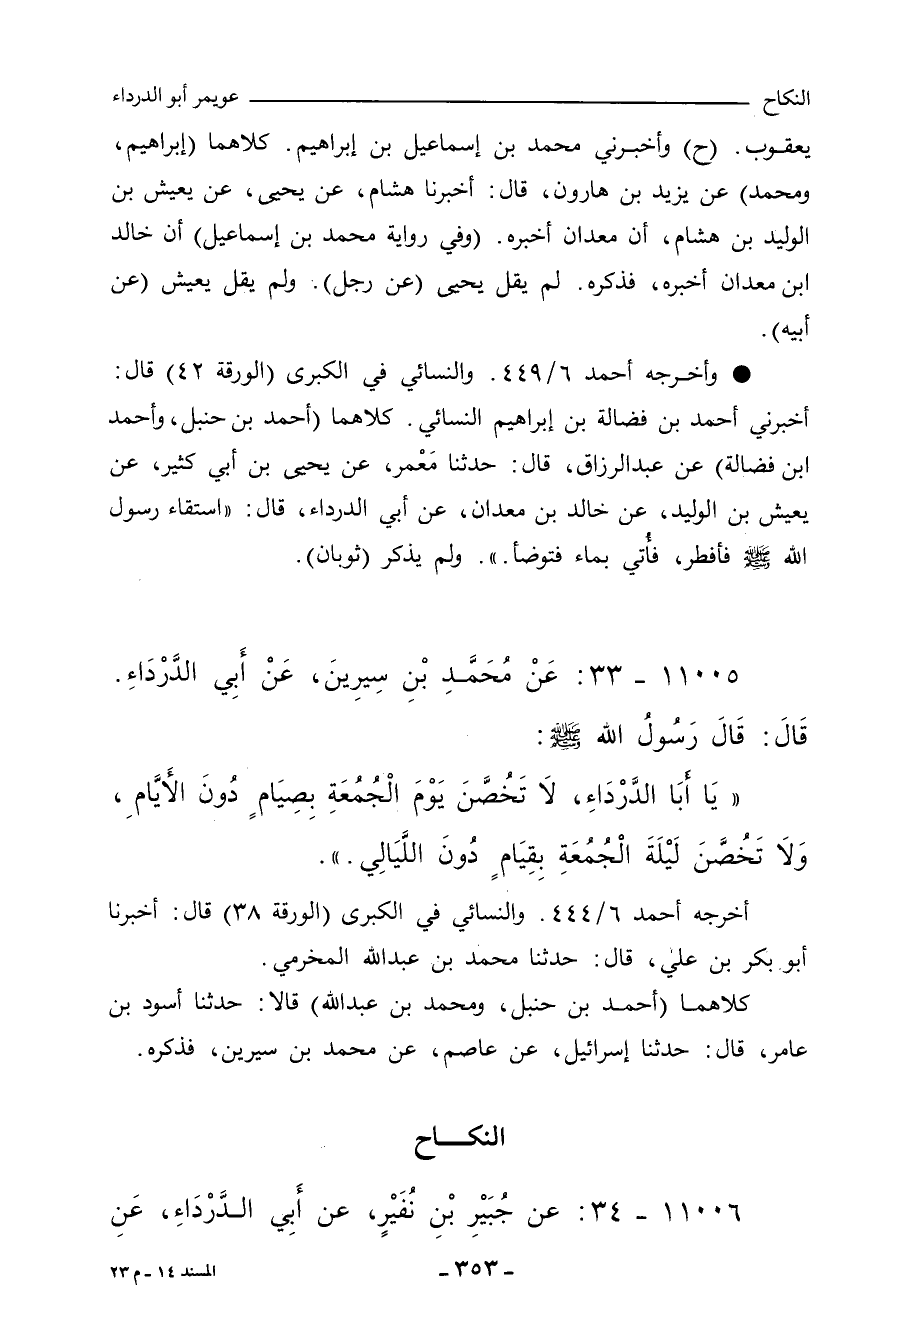 النكاح عويمر أبو الدرداء
يعقوب. (ح) وأخبرني محمد بن إسماعيل بن إبراهيم. كلاهما (إبراهيم،
ومحمد) عن يزيد بن هارون، قال: أخبرنا هشام، عن يحيى، عن يعيش بن
الوليد بن هشام، أن معدان أخبره. (وفي رواية محمد بن إسماعيل) أن خالد
ابن معدان أخبره، فذكره. لم يقل يحيى (عن رجل). ولم يقل يعيش (عن
أبيه).
● وأخرجه أحمد ٤٤٩/٦. والنسائي في الكبرى (الورقة ٤٢) قال:
أخبرني أحمد بن فضالة بن إبراهيم النسائي. كلاهما (أحمد بن حنبل، وأحمد
ابن فضالة) عن عبدالرزاق، قال: حدثنا مَعْمر، عن يحيى بن أبي كثير، عن
يعيش بن الوليد، عن خالد بن معدان، عن أبي الدرداء، قال: «استقاء رسول
الله ﷺ فأفطر، فأُتي بماء فتوضأ.». ولم يذكر (ثوبان).
١١٠٠٥ - ٣٣: عَنْ مُحَمَّدِ بْنِ سِيرِينَ، عَنْ أَبِي الدَّرْدَاءِ.
قَالَ: قَالَ رَسُولُ الله ﷺ:
« يَا أَبَا الدَّرْدَاءِ، لَا تَخُصَّنَ يَوْمَ الْجُمُعَةِ بِصِيَامٍ دُونَ الأَيَّامِ،
وَلَا تَخُصَّنَ لَيْلَةَ الْجُمُعَةِ بِقِيَامٍ دُونَ اللَّيَالِي.».
أخرجه أحمد ٤٤٤/٦. والنسائي في الكبرى (الورقة ٣٨) قال: أخبرنا
أبو بكر بن علي، قال: حدثنا محمد بن عبدالله المخرمي.
كلاهما (أحمد بن حنبل، ومحمد بن عبدالله) قالا: حدثنا أسود بن
عامر، قال: حدثنا إسرائيل، عن عاصم، عن محمد بن سيرين، فذكره.
النكاح
١١٠٠٦ - ٣٤: عن جُبَيْرِ بْنِ نُفَيْرٍ، عن أَبِي الدَّرْدَاءِ، عَنِ
- ٣٥٣ -
المسند ١٤ - م ٢٣